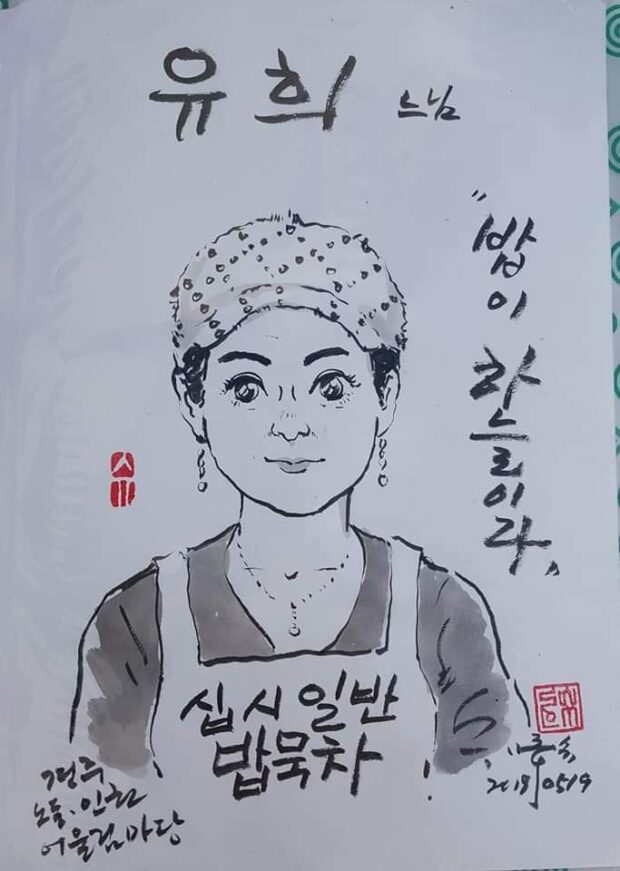 유희 느님
"밥이 하늘이라"
십시일반
밥묵차
경주
노동.인권
어울림마당
2018 0519